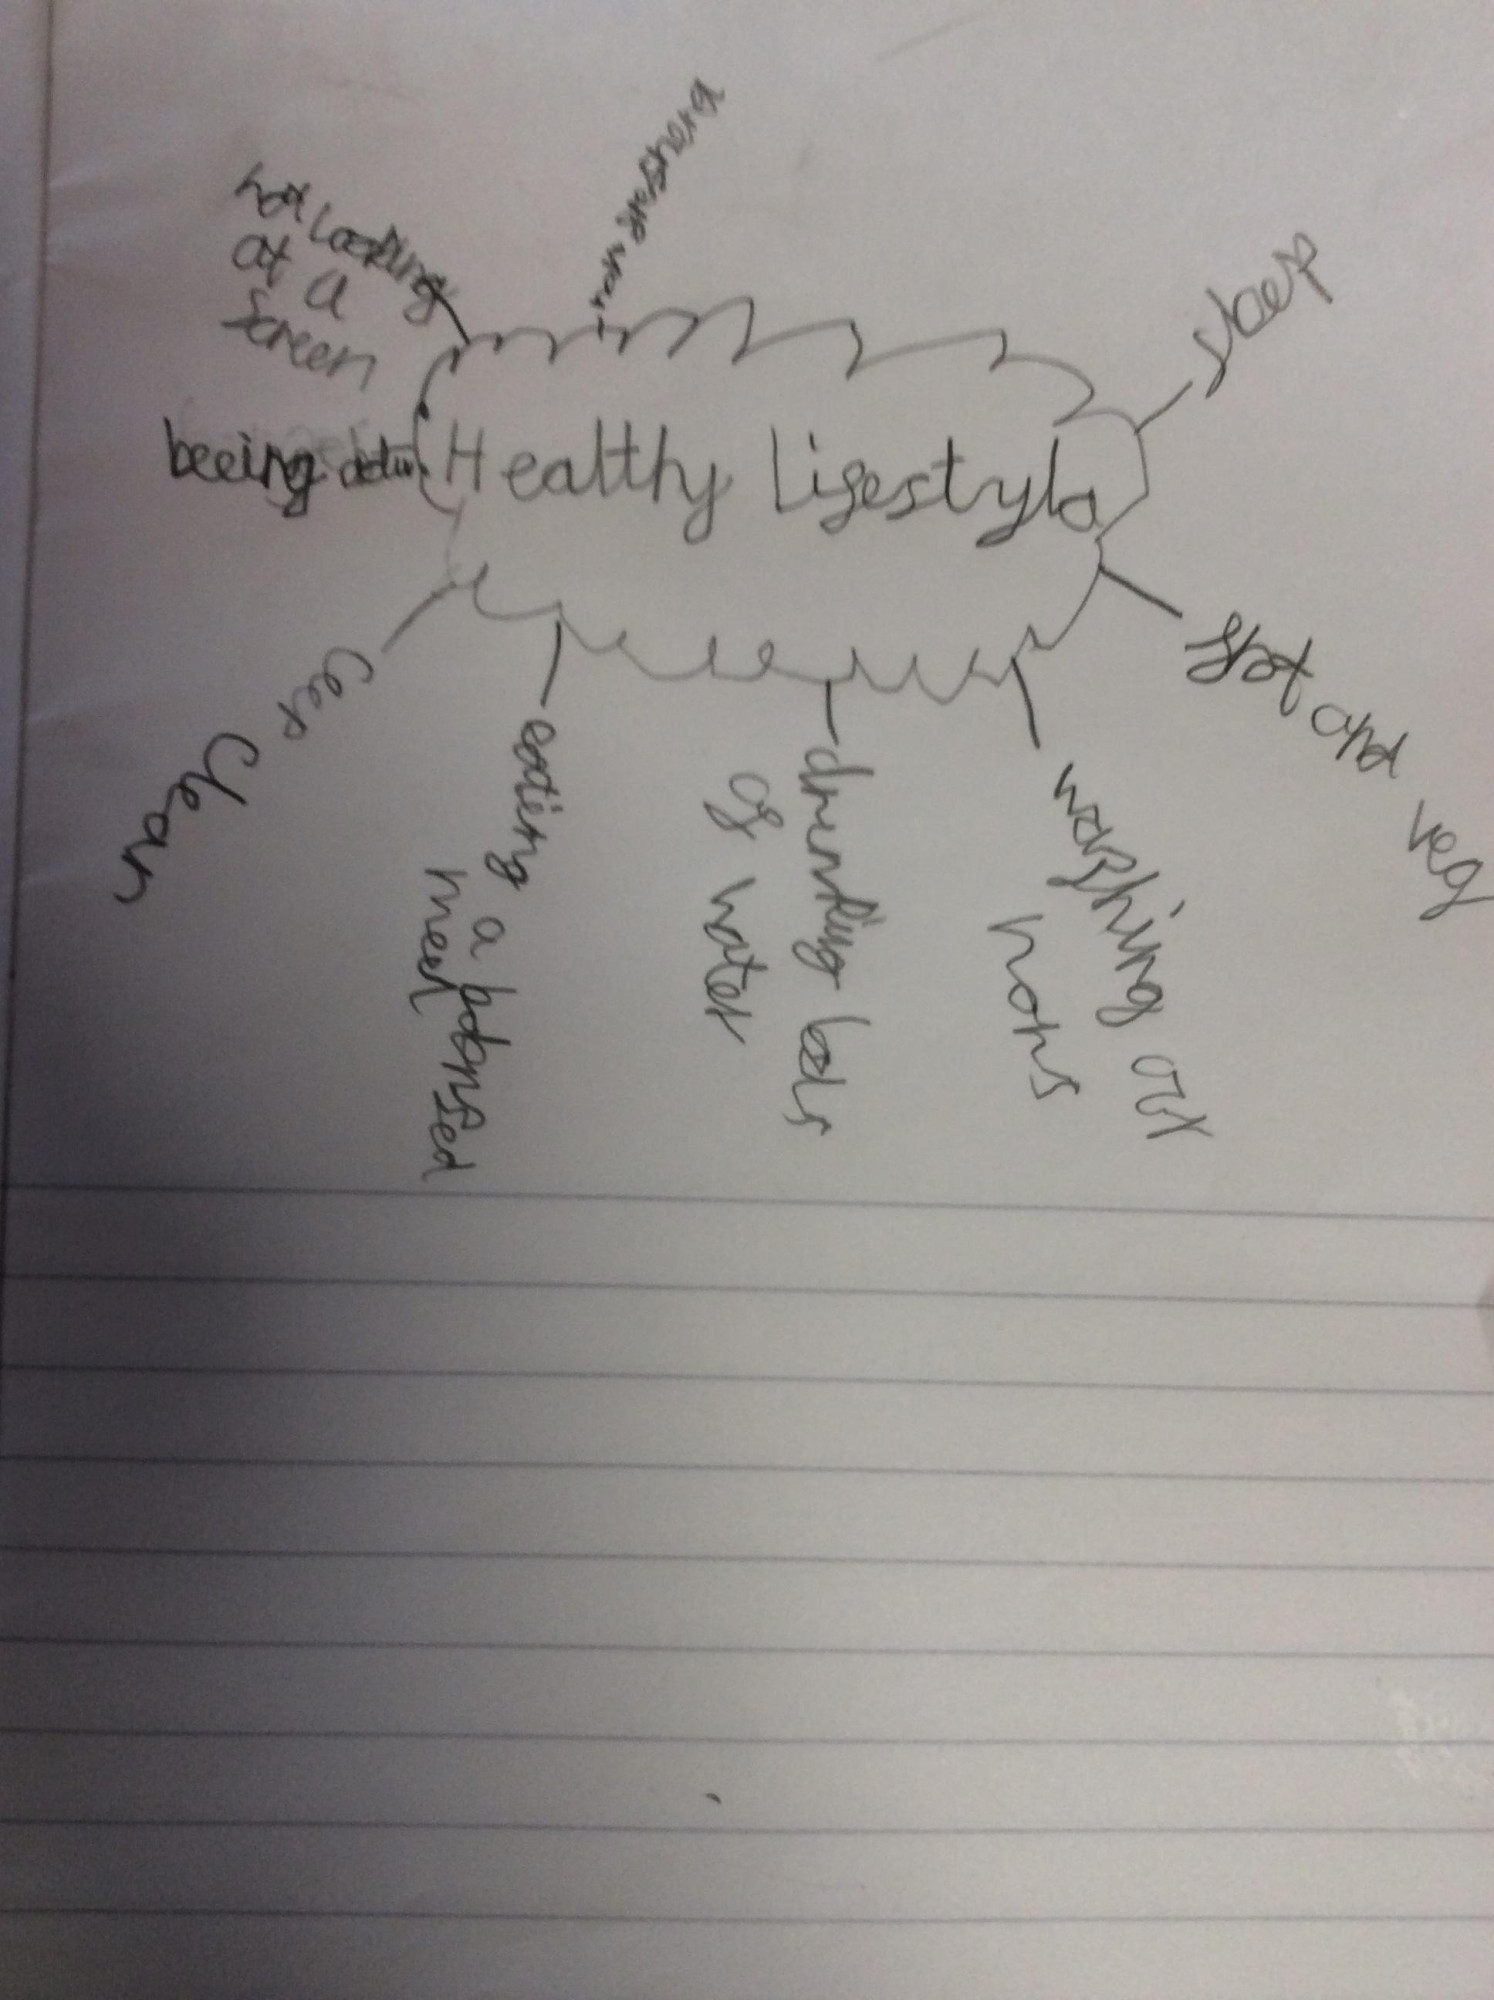 Healthy Lifestyle
sleep
and veg
washing our
hans
drinking lods
of water
eating a
meal
Ceep Clean
beeing
not Looking
at a
Screen